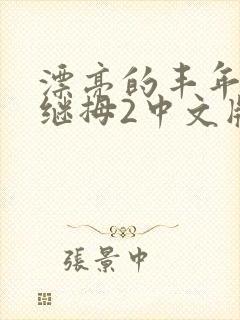 漂亮的丰年
继拇2中文版
張景中